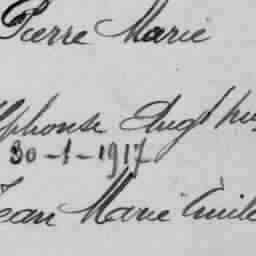 Pierre Marie
Alphonse Aug
30-1-1917
Jean Marie Emile